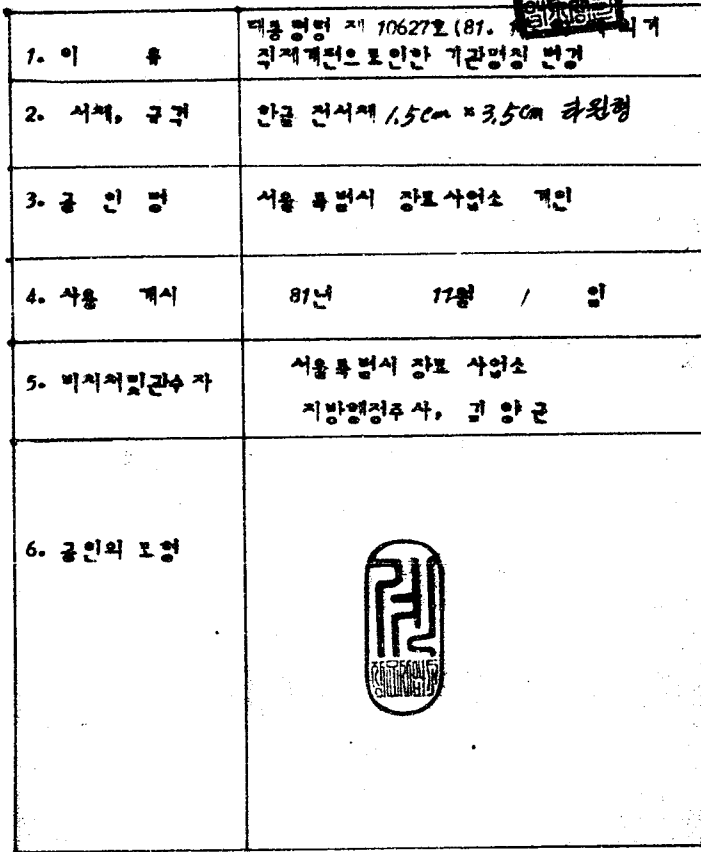 1. 이 유
대통령령 제 10627호 (81. 의거
직제개편으로인한 기관명칭 변경
2. 서체, 규격
한글 전서체 1.5cm × 3.5cm 타원형
3. 공 인 명
서울 특별시 장묘 사업소 계인
4. 사용 개시
81년 11월 1 일
5. 비치처및관수자
서울특별시 장묘 사업소
지방행정주사, 김 양 근
6. 공인의 모형